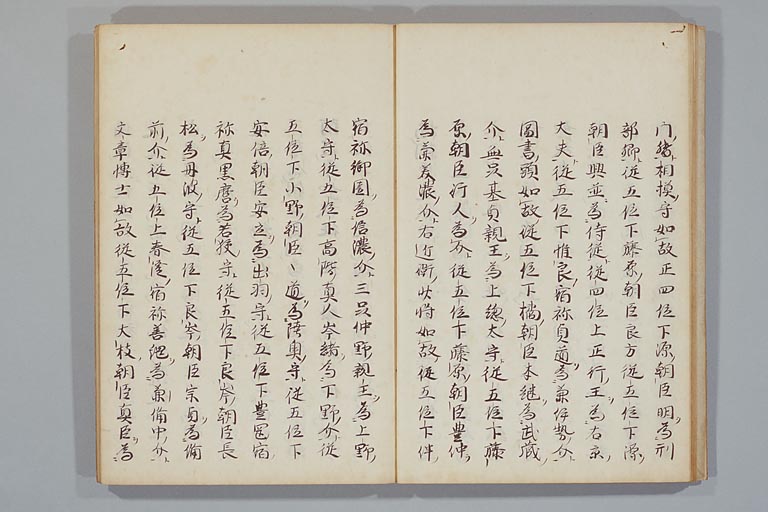 門、緒相摸守如故正四位下源朝臣明為刑
部卿従五位下藤原朝臣良方従五位下源
朝臣興並為侍従従四位上正行王為右京
大夫従五位下惟良宿祢貞道為兼伊勢介
圖書頭如故従五位下橘朝臣本継為武蔵
介無品基貞親王為上総太守従五位下藤
原朝臣行人為介従五位下藤原朝臣豊仲
為兼美濃介右近衛少将如故従五位下伴
宿祢御園為信濃介三品仲野親王為上野
太守従五位下高階真人岑緒為下野介従
五位下小野朝臣〻道為陸奥守従五位下
安倍朝臣安立為出羽守従五位下豊岡宿
祢真黒麿為若狭守従五位下良岑朝臣長
松為丹波守従五位下良岑朝臣宗貞為備
前介従五位上春澄宿祢善縄為兼備中介
文章博士如故従五位下大枝朝臣真臣為